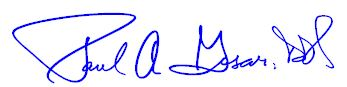 Paul A Gosar, DDS